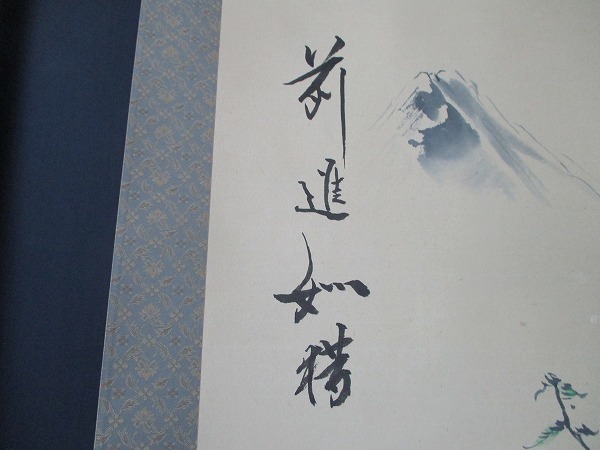 前進如猪